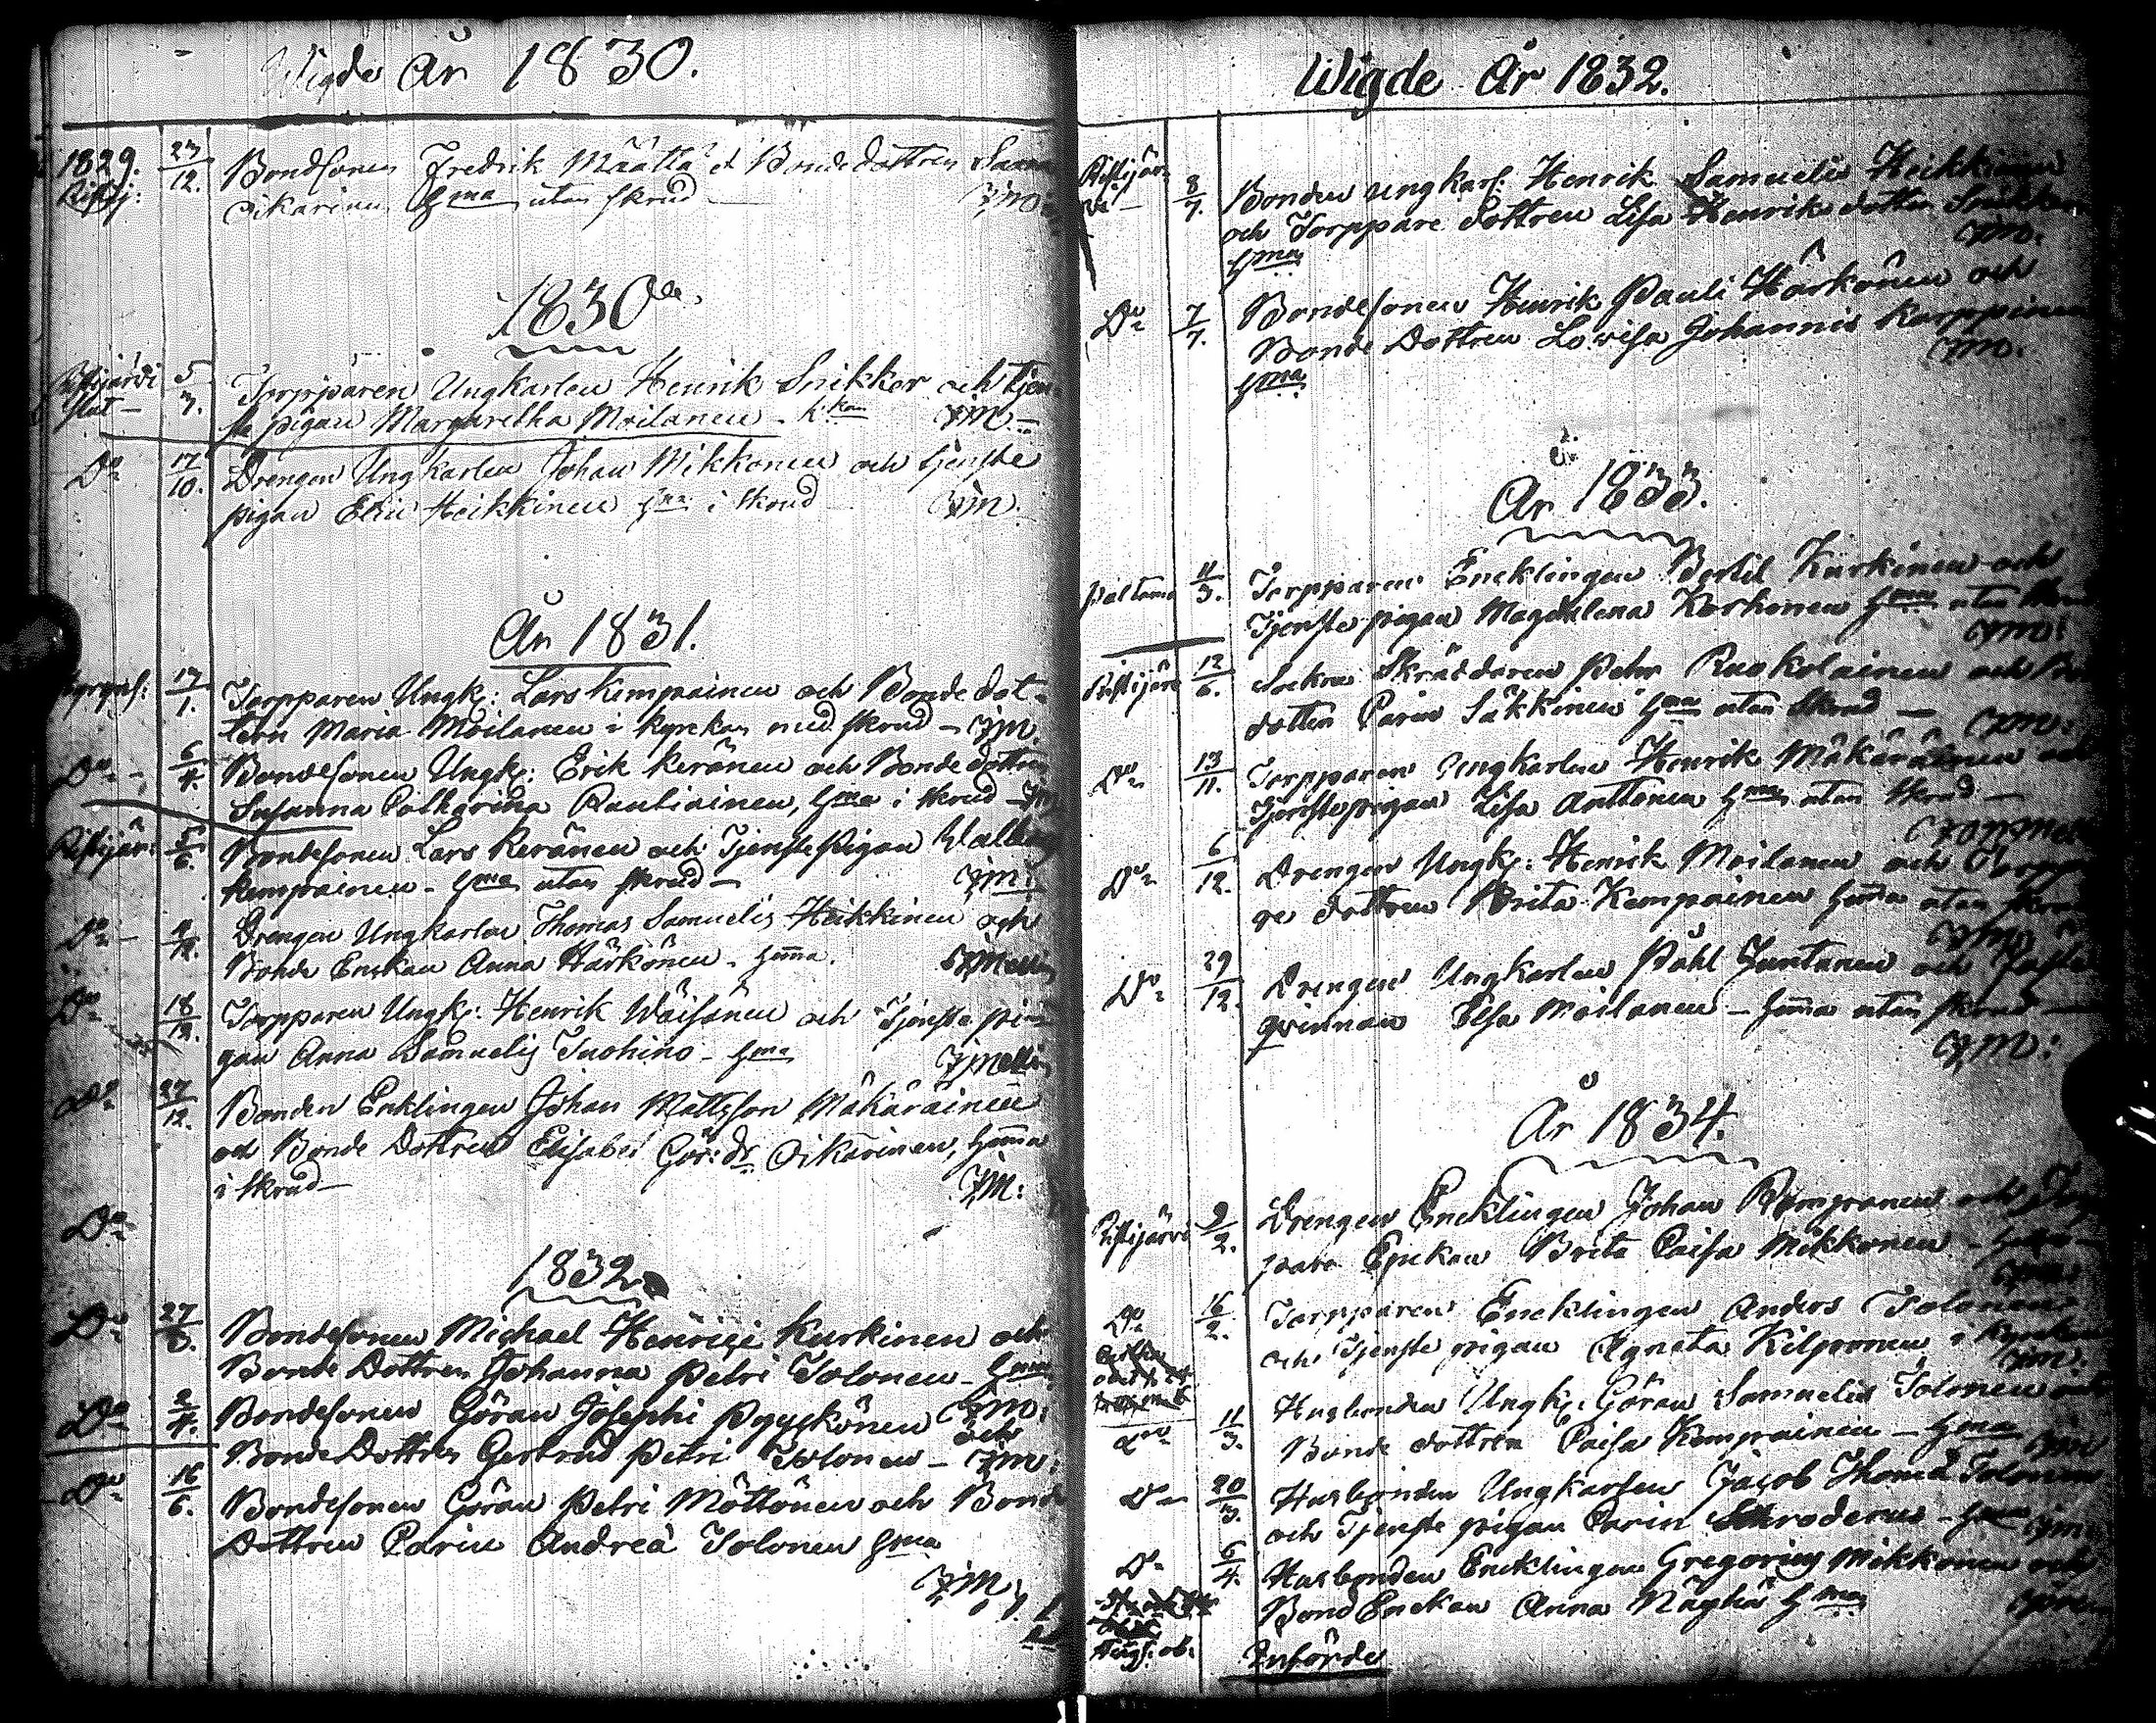 Wigde År 1830.
1829. 23/12. Bondsonen Fredrik Määttä et Bondedottren Saara
Ristij: Oikarinen Hma utan skrud JM.
1830a.
Ristijärvi 5/3. Torpparen Ungkarlen Henrik Snikker och tjen
ste pigan Margaretha Moilanen - JM.
Do 17/10. Drengen Ungkarlen Johan Mikkonen och tjenste
pigan Elin Heikkinen Hma i skrud JM.
År 1831.
17/1. Torpparen Ungk: Lars Kempainen och Bonde dot-
tern Maria Moilanen i kyrkan med skrud - JM.
Do - 6/4. Bondesonen Ungk: Erik Keränen och Bonde dottren
Susanna Catharina Rautiainen, Hma i skrud - JM
Ristijär: 5/6. Bondesonen Lars Keränen och Tjenste Pigan Walborg
Kempainen - Hma utan skrud - JM:
Do - 4/12. Drengen Ungkarlen Thomas Samuelis Heikkinen och
Bonde Enkan Anna Härkönen - Hemma.
Do 18/12. Torpparen Ungk: Henrik Wäisänen och Tjenste pi-
gan Anna Samuelis Tuohino - Hma
Do 27/12. Bonden Enklingen Johan Mattsson Mäkäräinen
och Bonde Dottren Elisabet Gör: dr Oikarinen, Hemma
i skrud - JM:
Do
1832
Do 27/3. Bondesonen Michael Henrici Kurkinen och
Bonde Dottren Johanna Petri Tolonen - Hma
Do 2/4. Bondesonen Göran Josephi Pyykönen och JM:
Bonde Dottren Gertrud Petri Tolonen - JM:
Do 16/6. Bondesonen Göran Petri Möttönen och Bonde
Dottren Carin Andreä Tolonen Hma
JM
Wigde År 1832.
Ristijär- 8/7. Bonden ungkarl: Henrik Samuelis Heikkinen
och Torppare dottren Lisa Henriks dotter
Hma JM.
Do 7/7. Bondesonen Henrik Pauli Härkönen och
Bonde Dottren Lovisa Johannis Karppinen
Hma JM.
År 1833.
Paltamo 11/3. Torpparen Encklingen Bertil Kurkinen och
Tjenste pigan Magdalena Korhonen Hma utan skrud
JM:
Ristijärv 12/6. Sockne Skräddaren Petr Ruokolainen och
dotten Carin Säkkinen Hma utan skrud - JM:
Do 13/11. Torpparen Ungkarlen Henrik Mäkäräinen och
Tjenstepigan Lisa Anttonen Hma utan skrud -
Do 6/12. Drengen Ungk: Henrik Moilanen och Torppa
re dottren Brita Kempainen Hemma utan skrud
JM
Do 29/12. Drengen Ungkarlen Påhl Juntunen och
qvinnan Elsa Moilanen - Hemma utan skrud -
JM:
År 1834.
Ristijärvi 9/2. Drengen Encklingen Johan och Torp
pare Enckan Brita Caisa Mikkonen -
Do 16/2. Torpparen Encklingen Anders Tolonen
och Tjenste pigan Agneta Kilponen i Kyrkan
JM.
Do 11/3. Husbonden Ungk: Göran Samuelis Tolonen och
Bonde dottren Caisa Kempainen - Hma JM
Do 20/3. Husbonden Ungkarlen Jacob Thomä Tolonen
och Tjenste pigan Carin Schroderus - JM
Do 6/4. Husbonden Encklingen Gregorius Mikkonen och
Bond Enckan Anna Hma
Införde